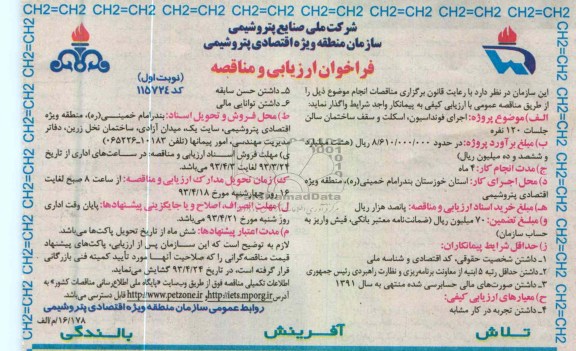 CH2=CH2 CH2=CH2 CH2=CH2 CH2=CH2 CH2=CH2 CH2=CH2 CH2=CH2
شرکت ملی صنایع پتروشیمی
سازمان منطقه ویژه اقتصادی پتروشیمی
فراخوان ارزیابی و مناقصه
(نوبت اول)
کد ۱۱۵۷۲۴
این سازمان در نظر دارد با رعایت قانون برگزاری مناقصات انجام موضوع ذیل را
از طریق مناقصه عمومی با ارزیابی کیفی به پیمانکار واجد شرایط واگذار نماید:
الف) موضوع پروژه: اجرای فونداسیون، اسکلت و سقف ساختمان سالن
جلسات ۱۲۰ نفره
ب) مبلغ برآورد پروژه: در حدود ۸/۶۱۰/۰۰۰/۰۰۰ ریال (هشت میلیارد
و ششصد و ده میلیون ریال)
ج) مدت انجام کار: ۴ ماه
د) محل اجرای کار: استان خوزستان بندرامام خمینی(ره)، منطقه ویژه
اقتصادی پتروشیمی
هـ) مبلغ خرید اسناد ارزیابی و مناقصه: پانصد هزار ریال
و) مبلغ تضمین: ۷۰۰ میلیون ریال (ضمانت‌نامه معتبر بانکی، فیش واریز به
حساب سازمان)
ز) حداقل شرایط پیمانکاران:
۱ـ داشتن شخصیت حقوقی، کد اقتصادی و شناسه ملی
۲ـ داشتن حداقل رتبه ۵ ابنیه از معاونت برنامه‌ریزی و نظارت راهبردی رئیس جمهوری
۳ـ داشتن صورت‌های مالی حسابرسی شده منتهی به سال ۱۳۹۱
ح) معیارهای ارزیابی کیفی:
۴ـ داشتن تجربه در کار مشابه
۵ـ داشتن حسن سابقه
۶ـ داشتن توانایی مالی
ط) محل فروش و تحویل اسناد: بندرامام خمینی(ره)، منطقه ویژه
اقتصادی پتروشیمی، سایت یک، میدان آزادی، ساختمان نخل زرین، دفاتر
مدیریت مهندسی، امور پیمانها (تلفن ۱۰۱۸۳-۰۶۵۲۲۶)
ی) مهلت فروش اسناد ارزیابی و مناقصه: در ساعت‌های اداری از تاریخ
۹۳/۳/۲۴ لغایت ۹۳/۴/۳ می‌باشد.
ک) زمان تحویل مدارک ارزیابی و مناقصه: از ساعت ۸ صبح لغایت
۱۶ روز چهارشنبه مورخ ۹۳/۴/۱۸
ل) مهلت انصراف، اصلاح و یا جایگزینی پیشنهادها: پایان وقت اداری
روز شنبه مورخ ۹۳/۴/۲۱ می‌باشد.
م) مدت اعتبار پیشنهادها: شش ماه از تاریخ تحویل پاکت‌ها می‌باشد.
لازم به توضیح است که این سازمان پس از ارزیابی، پاکت‌های پیشنهاد
قیمت مناقصه‌گرانی را که صلاحیت آنها مورد تأیید کمیته فنی بازرگانی
قرار گرفته است، در تاریخ ۹۳/۴/۲۳ گشایش می‌نماید.
اطلاعات تکمیلی مناقصه فوق از طریق وبسایت «پایگاه ملی اطلاع‌رسانی مناقصات کشور» به
آدرس http://iets.mporg.ir و http://www.petzone.ir قابل دسترسی می‌باشد.
روابط عمومی سازمان منطقه ویژه اقتصادی پتروشیمی
۱۶/۱۷۸/م الف
تلاش آفرینش بالندگی